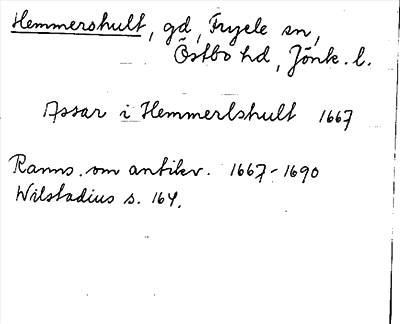 Hemmershult, gd, Fryele sn,
Östbo hd, Jönk. l.
Assar i Hemmerlshult 1667
Ranns. om antikv. 1667-1690
Wilstadius s. 164.